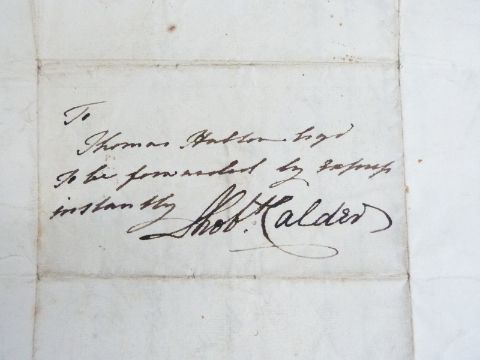 To
Thomas Hutton Esqr
To be forwarded by Express
instantly Thos. Calder